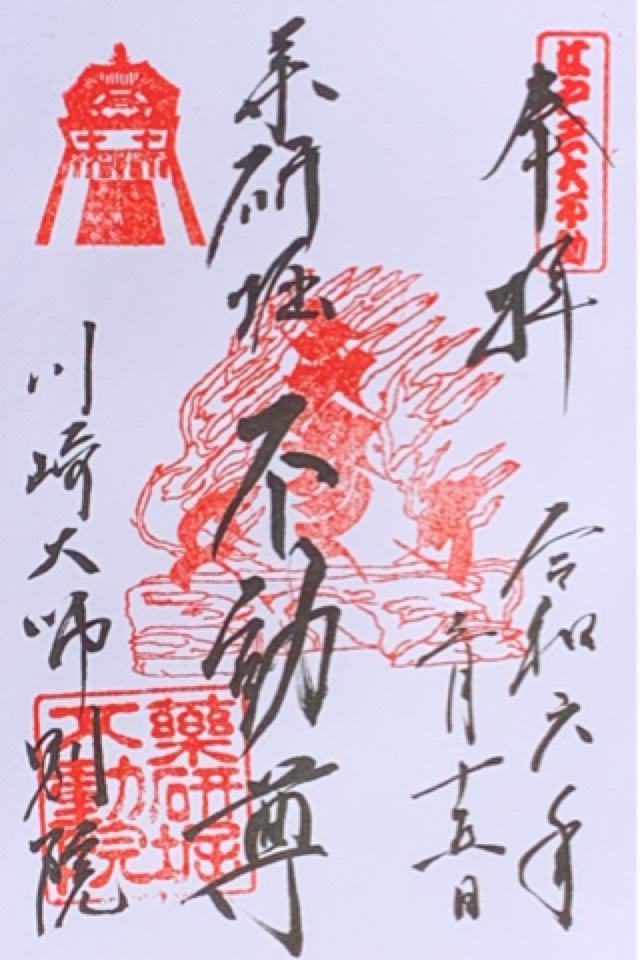 江戸三大不動
奉拝
令和六年
六月十五日
薬研堀
不動尊
薬研堀
不動院
川崎大師別院